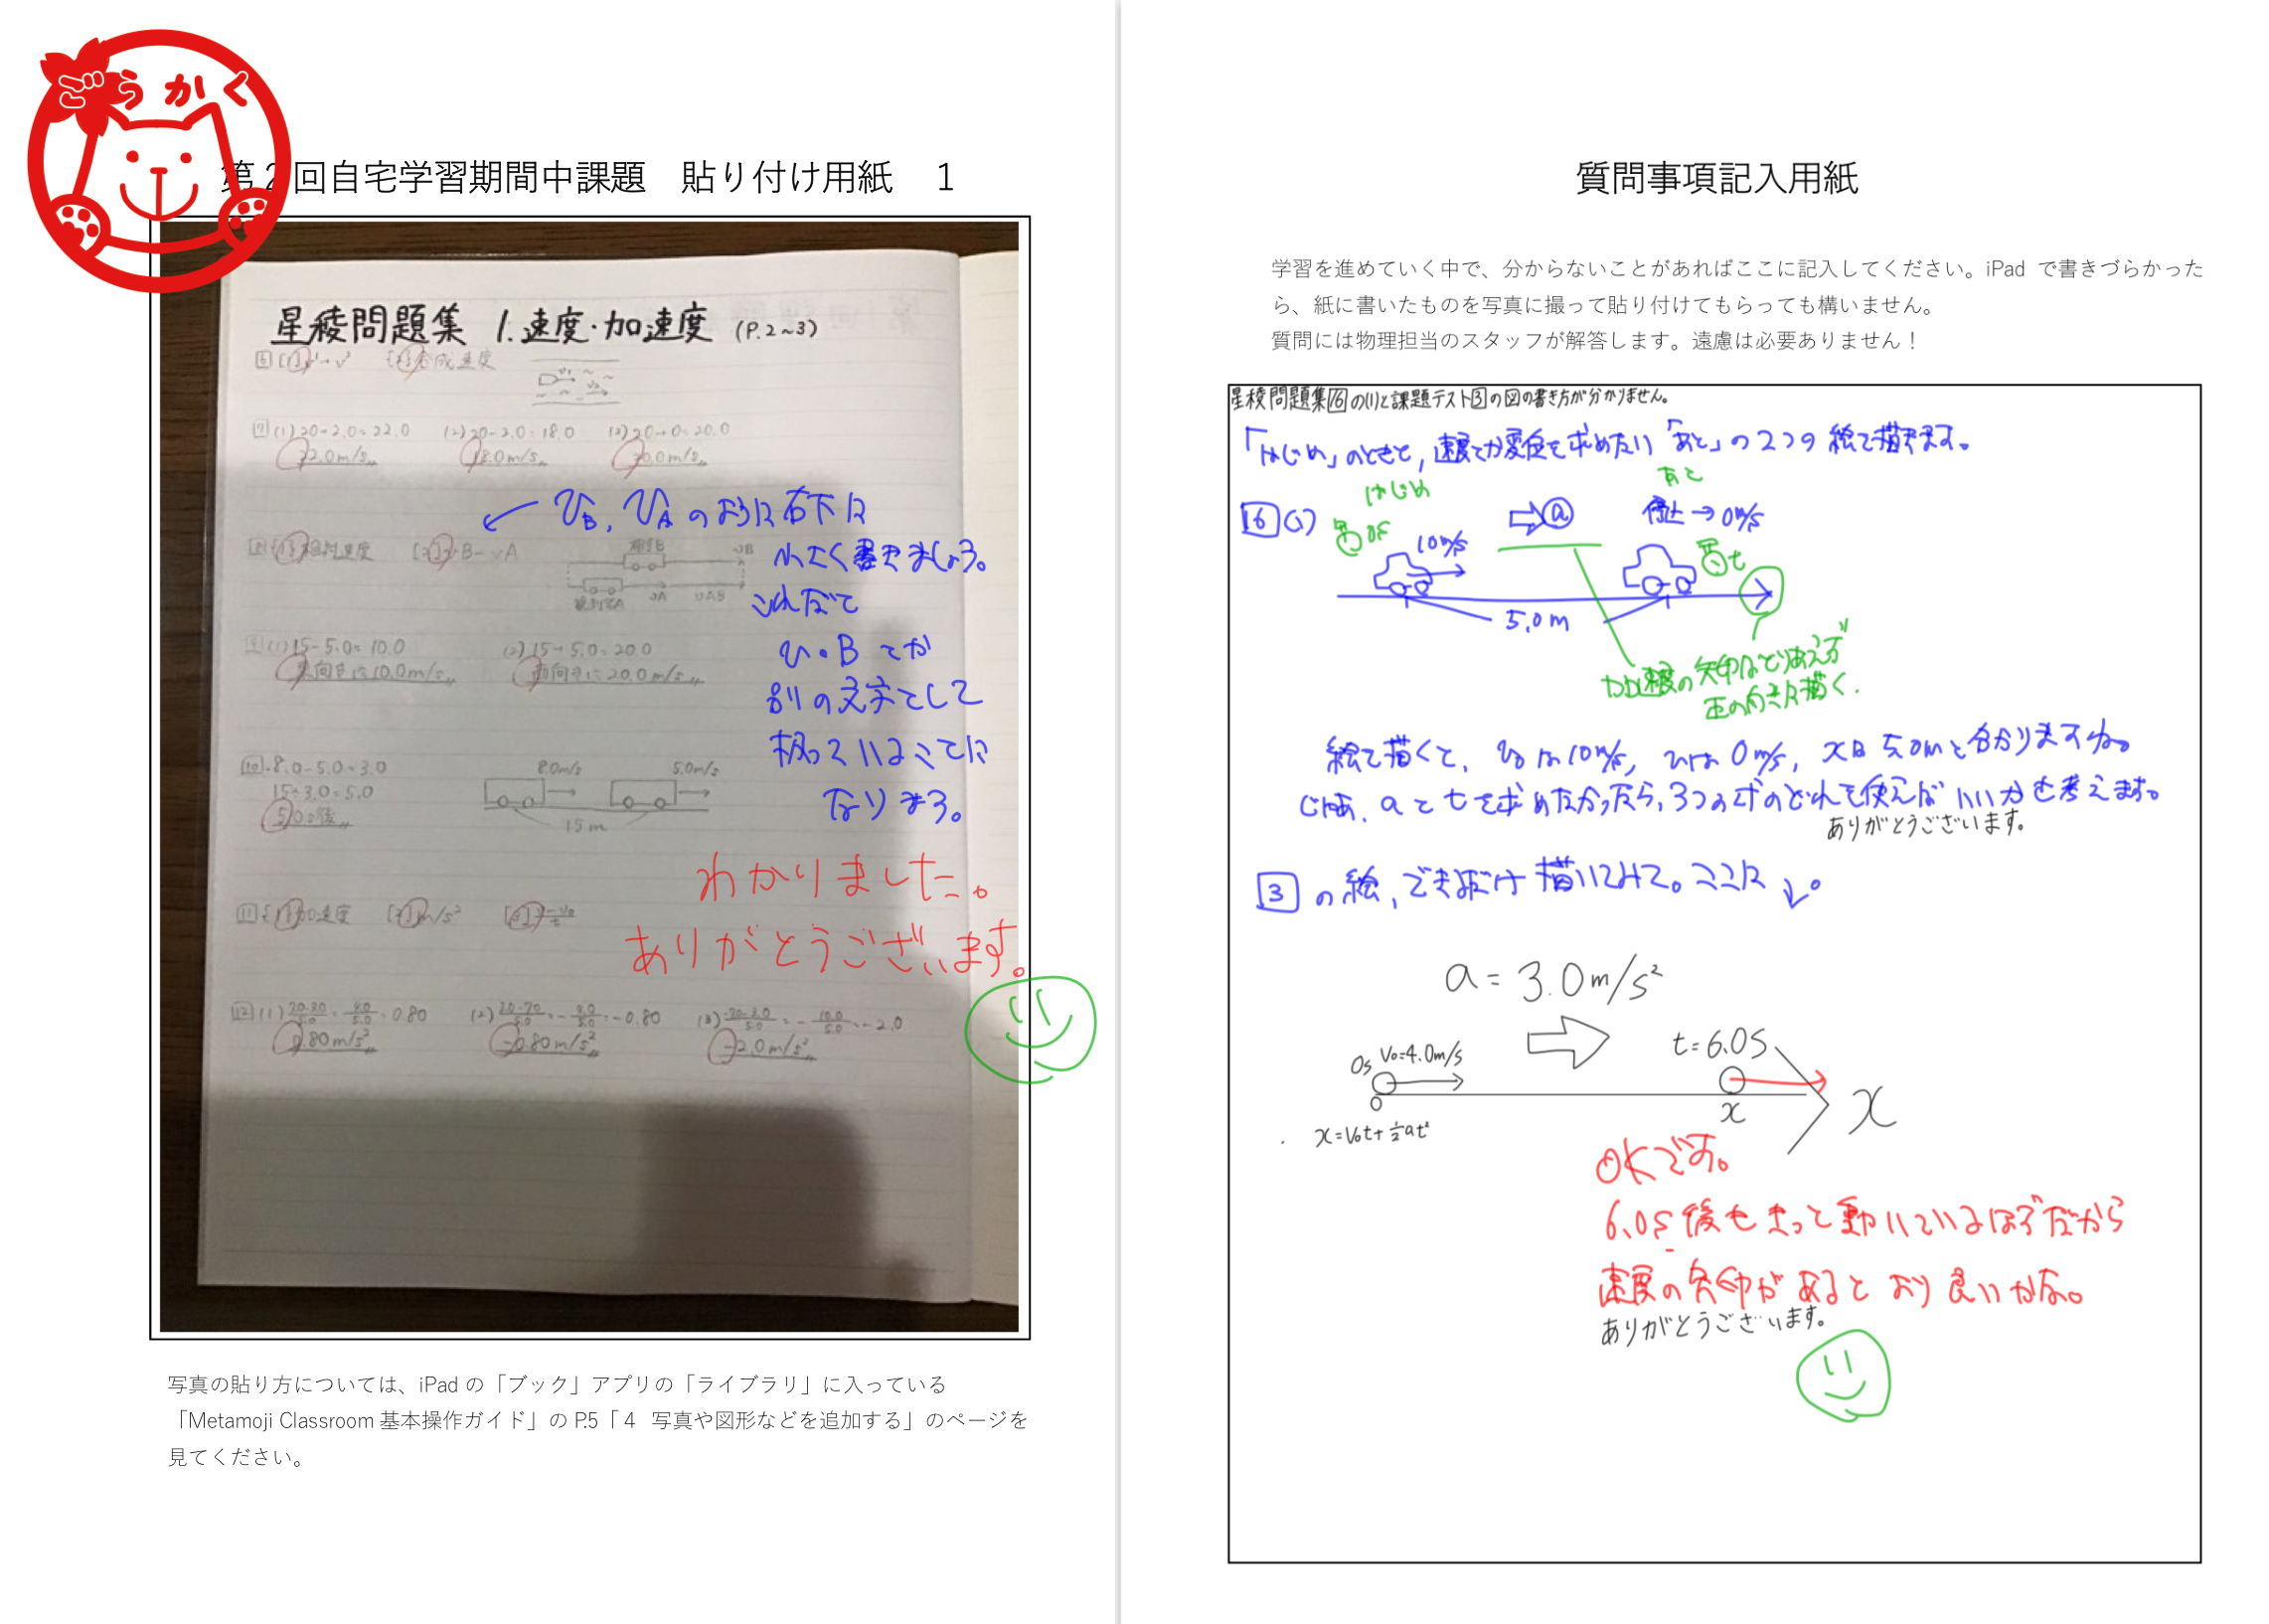 ごうかく
第2回自宅学習期間中課題　貼り付け用紙　1
星稜問題集 1.速度・加速度 (P.2~3)
6 [1] v²
[2] 合成速度
7 (1) 20+2.0=22.0 (2) 20-2.0=18.0 (3) 20+0=20.0
22.0m/s 18.0m/s 20.0m/s
← VB, VA のように右下に
小さく書きましょう。
これだと
v・B とか
別の文字として
扱っていることに
なります。
8 [1] 相対速度 [2] vB-vA
観測者A vA vAB
vB
9 (1) 15-5.0=10.0 (2) 15+5.0=20.0
東向きに10.0m/s 西向きに20.0m/s
10 8.0-5.0=3.0
15÷3.0=5.0
5.0s後
8.0m/s 5.0m/s
15m
わかりました。
ありがとうございます。
11 [1] 加速度 [2] m/s² [3] v-v₀/t
12 (1) 0.80 (2) -0.80 (3) -2.0
0.80m/s² -0.80m/s² -2.0m/s²
写真の貼り方については、iPad の「ブック」アプリの「ライブラリ」に入っている
「Metamoji Classroom 基本操作ガイド」の P.5「4 写真や図形などを追加する」のページを
見てください。
質問事項記入用紙
学習を進めていく中で、分からないことがあればここに記入してください。iPad で書きづらかった
ら、紙に書いたものを写真に撮って貼り付けてもらっても構いません。
質問には物理担当のスタッフが解答します。遠慮は必要ありません！
星稜問題集16の(1)と課題テスト3の図の書き方が分かりません。
「はじめ」のときと, 速度とか変位を求めたい「あと」の2つの絵を描きます。
はじめ あと
16 (1) 0s 10m/s ⇒ a 停止→0m/s t
5.0m
加速度の矢印はとりあえず
正の向きに描く.
絵で描くと、v₀は10m/s, vは0m/s, xは5.0mと分かりますね。
じゃあ、aとtを求めたかったら, 3つの式のどれを使えばいいかを考えます。
ありがとうございます。
3 の絵, できるだけ描いてみて。ここに↓。
a = 3.0m/s²
0s V₀=4.0m/s t=6.0s
0 x x
x=V₀t+½at²
OKです。
6.0s後もきっと動いているはずだから
速度の矢印があると より良いかな。
ありがとうございます。